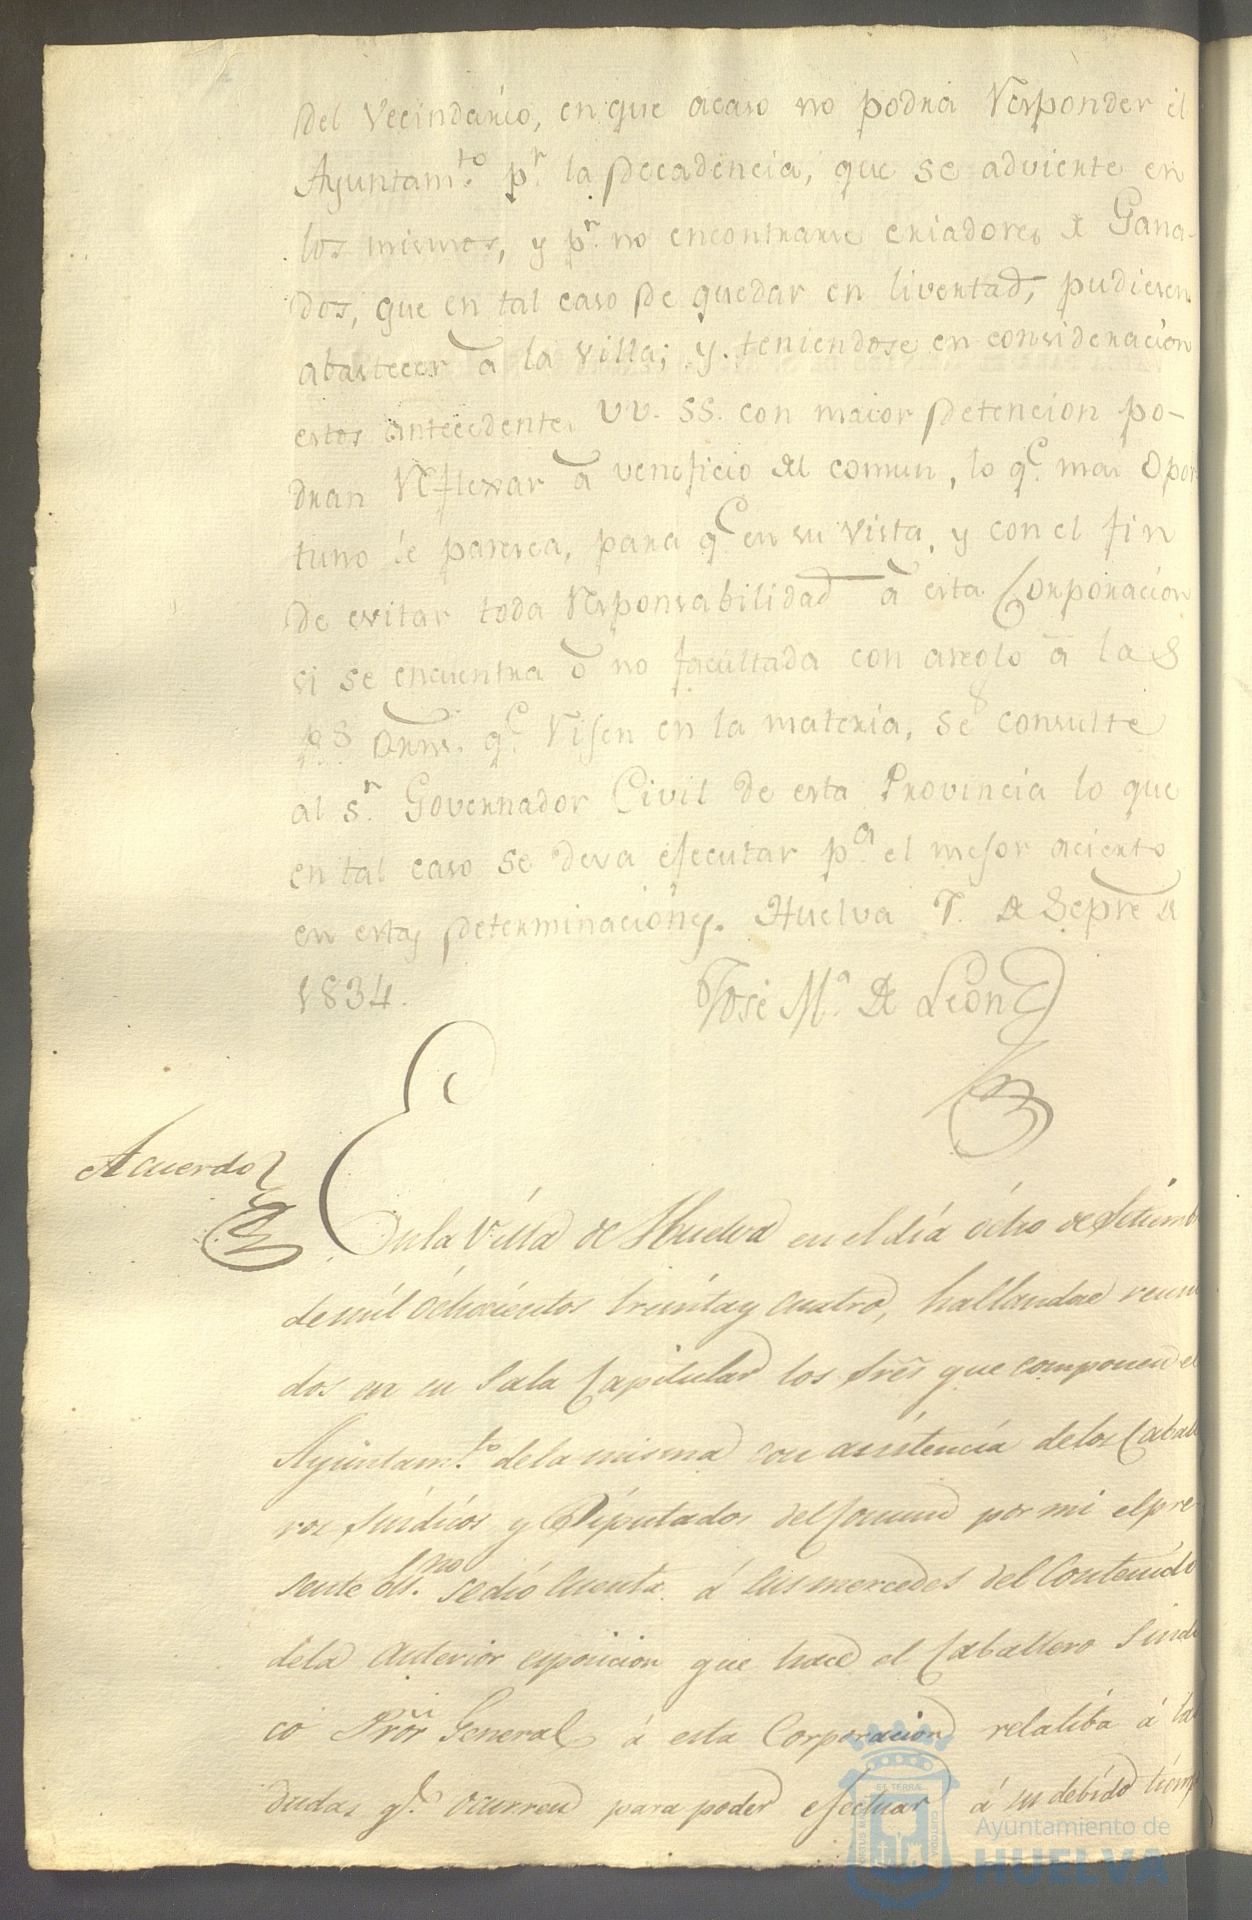 del Vecindario, en que acaso no podria Responder el
Ayuntam.to p.r la decadencia, que se advierte en
los mismos, y p.r no encontrarse criadores de Gana-
dos, que en tal caso de quedar en livertad, pudiesen
abastecer â la Villa; y teniendose en consideracion
estos antecedentes VV. SS. con maior detencion po-
dran Reflexar â veneficio del comun, lo q.e mas Opor
tuno le paresca, para q.e en su Vista, y con el fin
de evitar toda Responsabilidad â esta Corporacion
si se encuentra ô no facultada con areglo â la S
p.s Orns. q.e Rijen en la materia, se consulte
al S.r Governador Civil de esta Provincia lo que
en tal caso se deva ejecutar p.a el mejor acierto
en estas determinaciones. Huelva 7. de Sepre de
1834.
José M.a de Leon
Acuerdo
En la Villa de Huelva en el dia ócho de Setiemb
de mil óchocientos treinta y cuatro, hallandose reuni
dos en su Sala Capitular los Sres que componen el
Ayuntam.to de la misma con asistencia de los Caball
ros Sindicos y Diputados del Comun por mi el pre
sente Es.no se dió cuenta á sus mercedes del Contenido
de la anterior esposicion que hace el Caballero Sindi
co Pror General á esta Corporacion relatiba á las
dudas q.e ocurren para poder efectuar á su debido tiemp
Ayuntamiento de
HUELVA